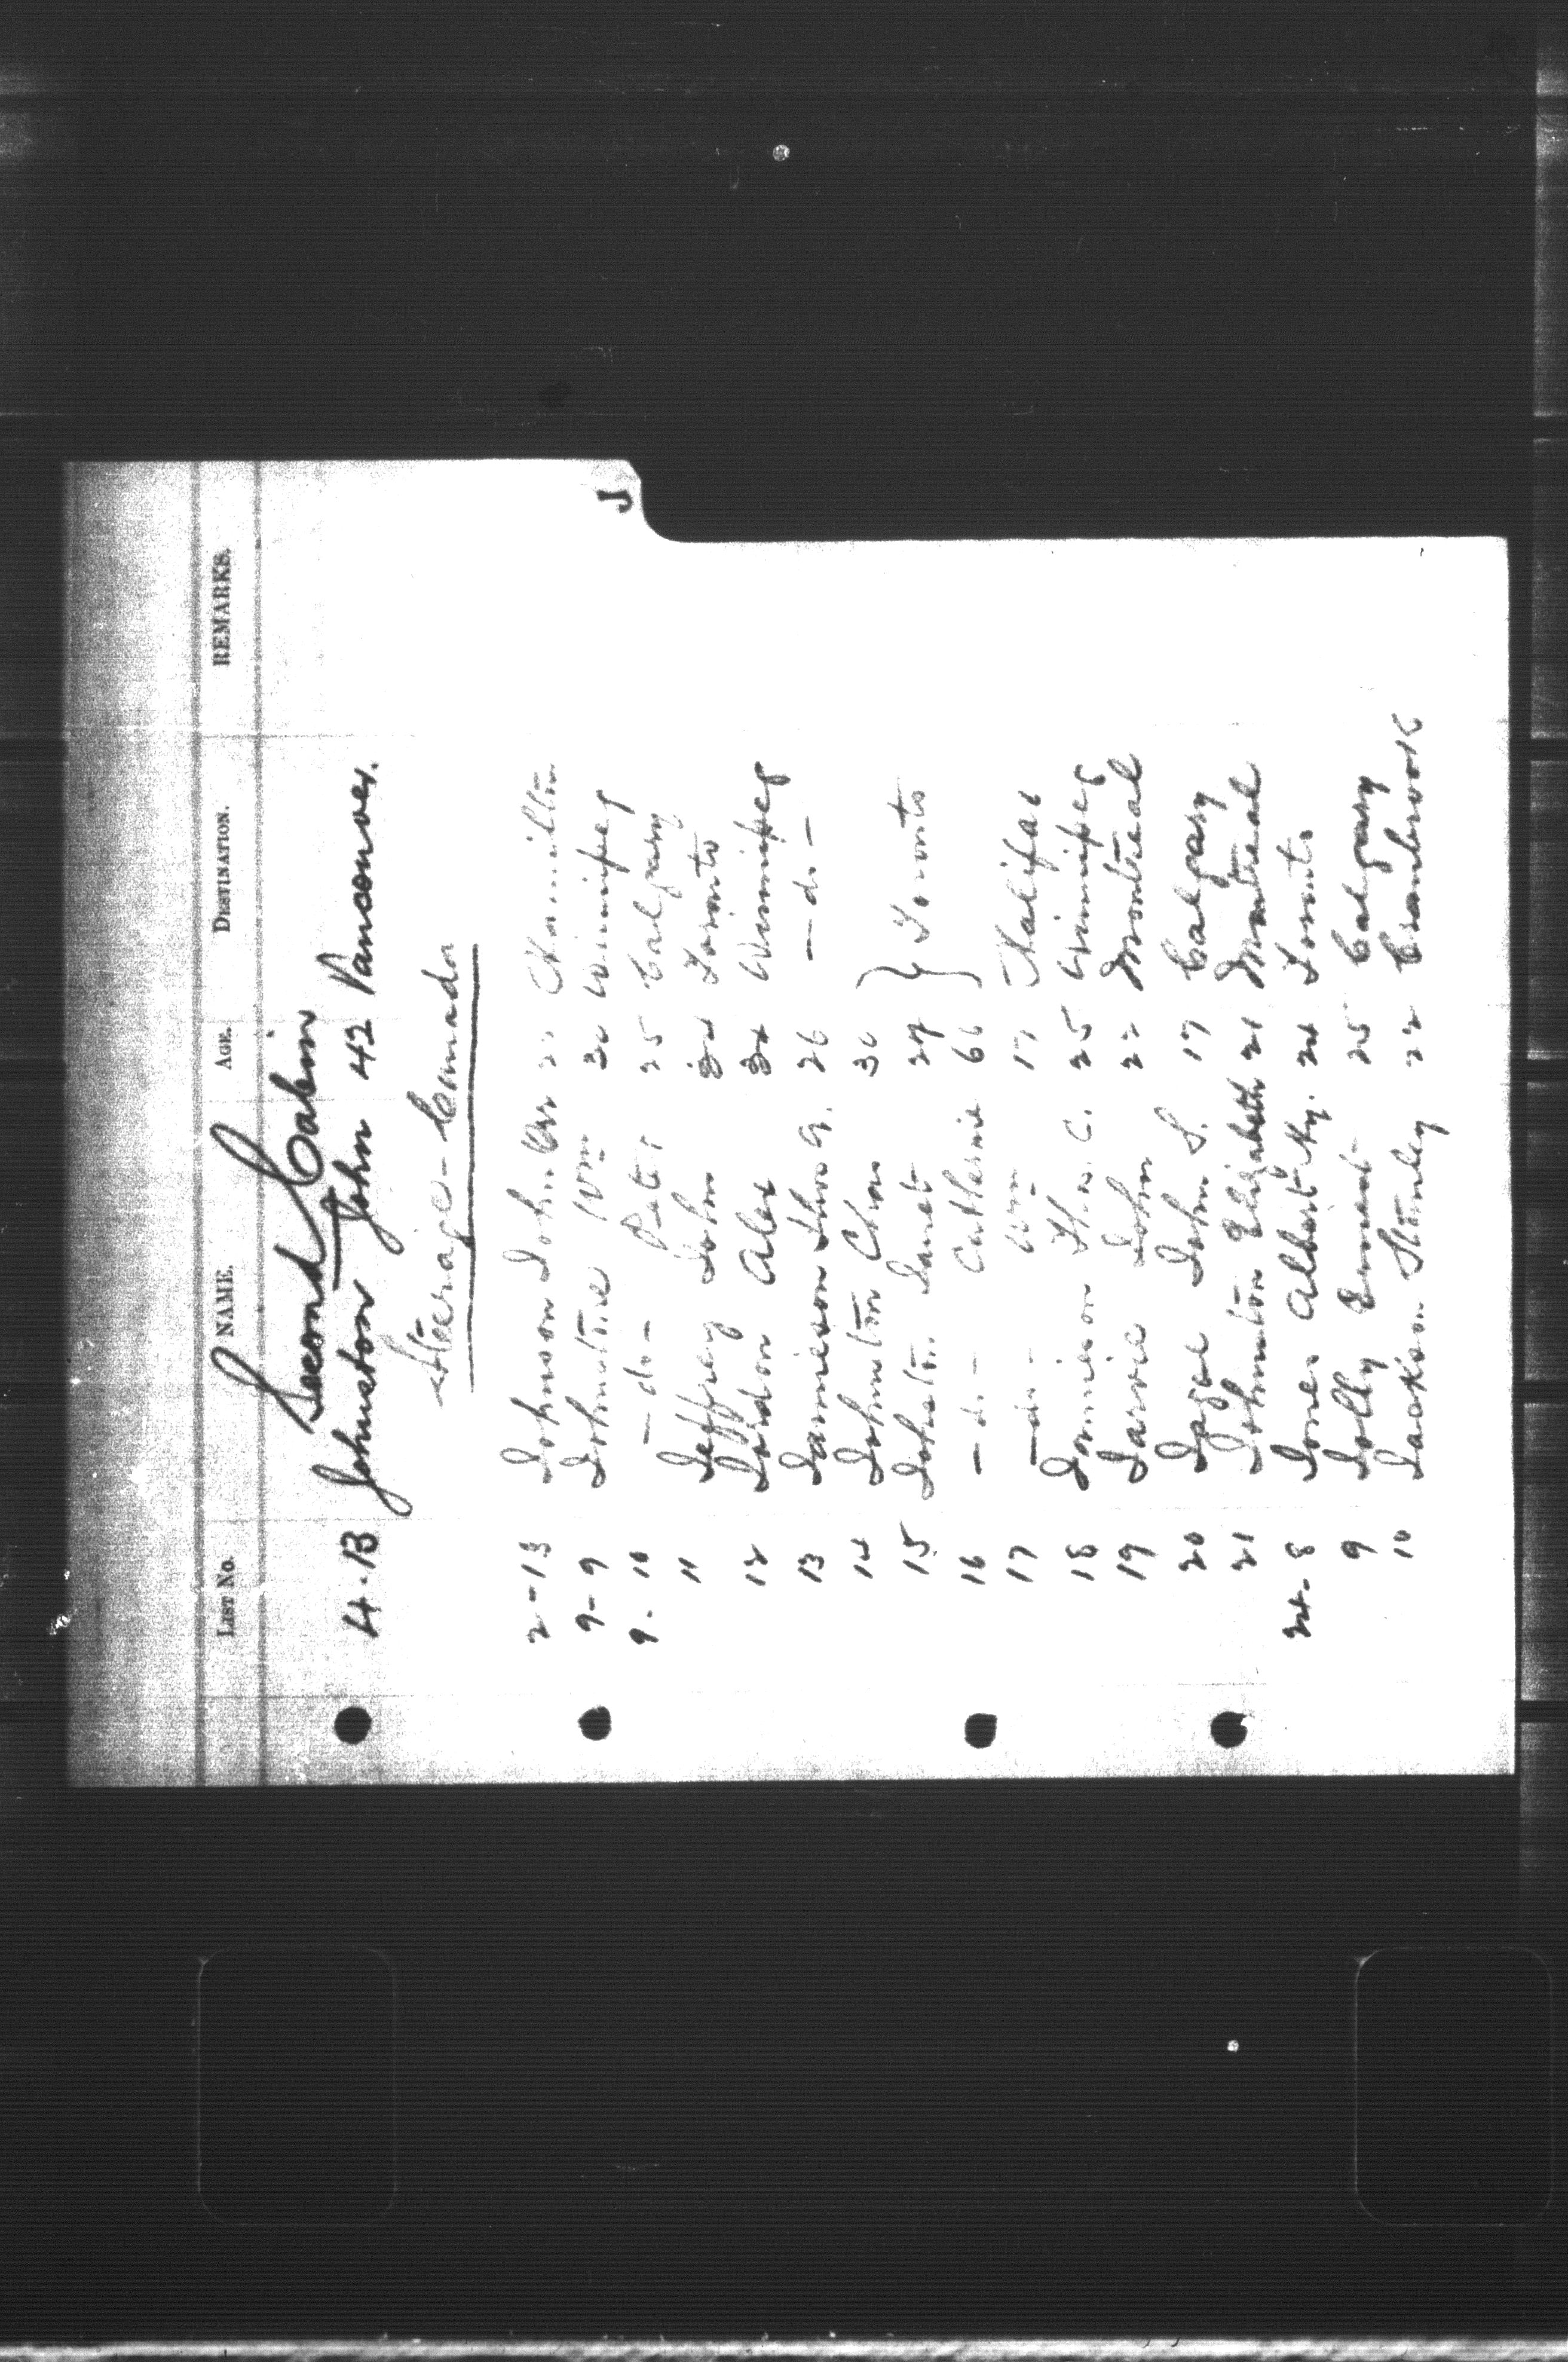 J
LIST NO. NAME. AGE. DESTINATION. REMARKS.
Second Cabin
4-13 Johnston John 42 Vancouver.
Steerage - Canada
2-13 Johnson John 2 Hamilton
9-9 Johnstone Wm 30 Winnipeg
9-10 -do- Peter 25 Calgary
11 Jeffrey John Toronto
12 Jordon Alex Winnipeg
13 Jamieson Thos G. 26 -do-
14 Johnston Chas 30
15 Johnston Janet 27 } Toronto
16 -do- Catherine 66
17 -do- Wm 17 Halifax
18 Jamieson Thos. C. 25 Winnipeg
19 Jarvie John 22 Montreal
20 John S. 17 Calgary
21 Johnston Elizabeth 21 Montreal
24-8 Jones Albert Hy. 24 Toronto
9 Jolly Ernest 25 Calgary
10 Jackson Stanley 22 Cranbrook